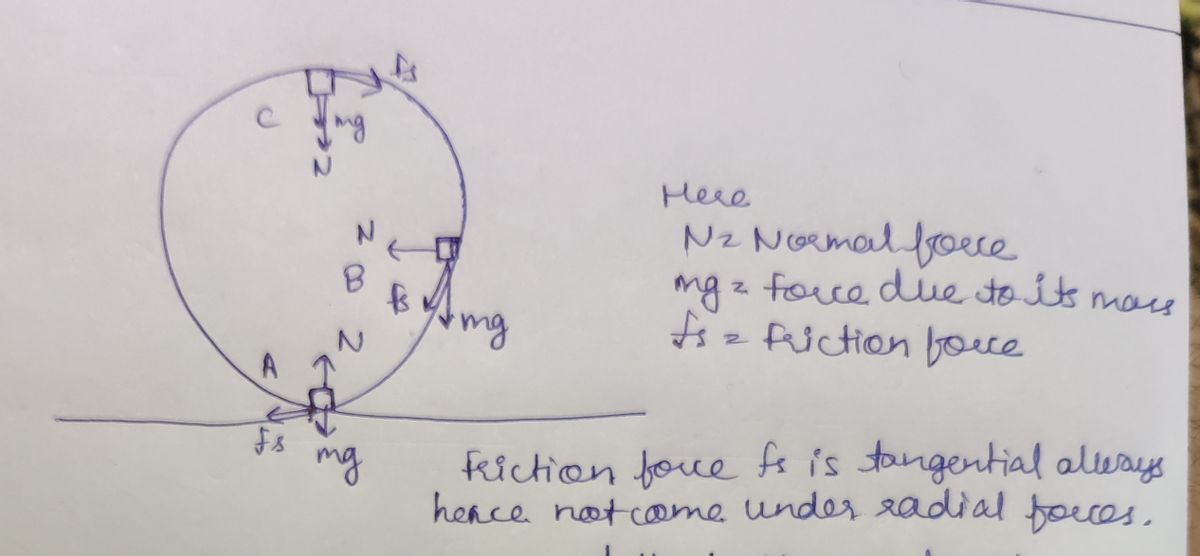 fs
C
mg
N
N
B
fs
mg
N
A
fs
mg
Here
N = Normal force
mg = force due to its mass
fs = friction force
Friction force fs is tangential always
hence not come under radial forces.